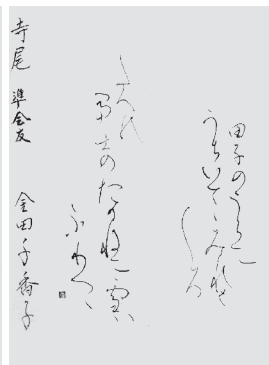 田子のうらに
うちいてゝみれは
しろ
たへの
富士のたかねに雪ハ
ふりつゝ
寺尾 準会友 金田千香子